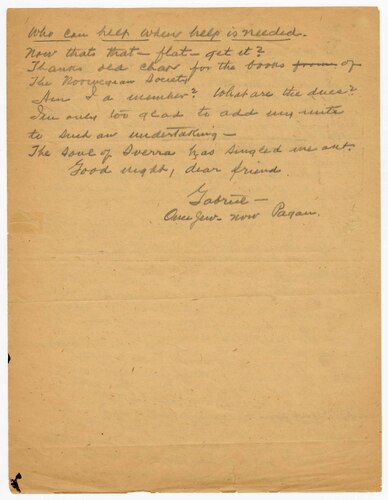 Who can help where help is needed.
Now thats that — flat — get it?
Thanks old chap for the books from of
The Norwegian Society
Am I a member? What are the dues?
I'm only too glad to add my mite
to such an undertaking —
The Soul of Sverra has singled me out.
Good night, dear friend.
Gabriel —
Once Jew now Pagan.